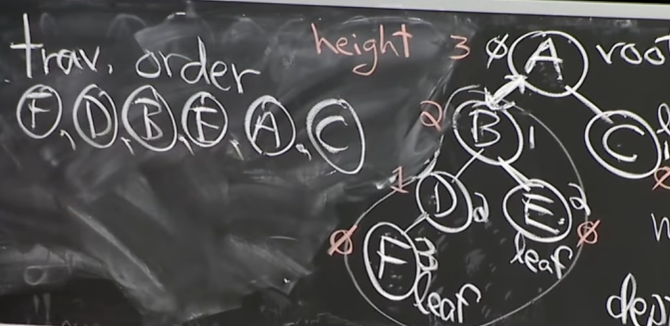 trav. order
F, D, B, E, A, C
height 3 ∅ A root
2 B 1
C
1 D 2 E 2 ∅
leaf
∅ F 3
leaf